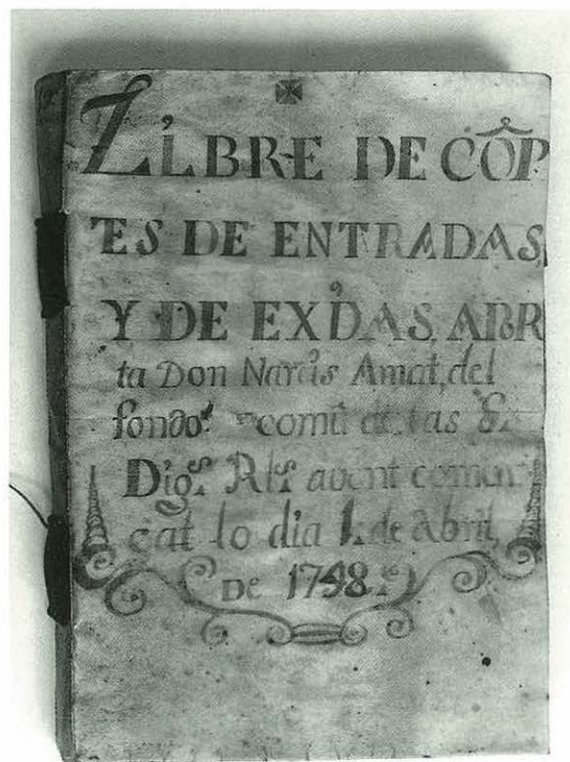 LLIBRE DE CÔP
TES DE ENTRADAS,
Y DE EXIDAS, ABR
ta Don Narcis Amat, del
fondo comũ de las
Dig.s R.ls avent comen
cat lo dia 1. de Abril,
DE 1748